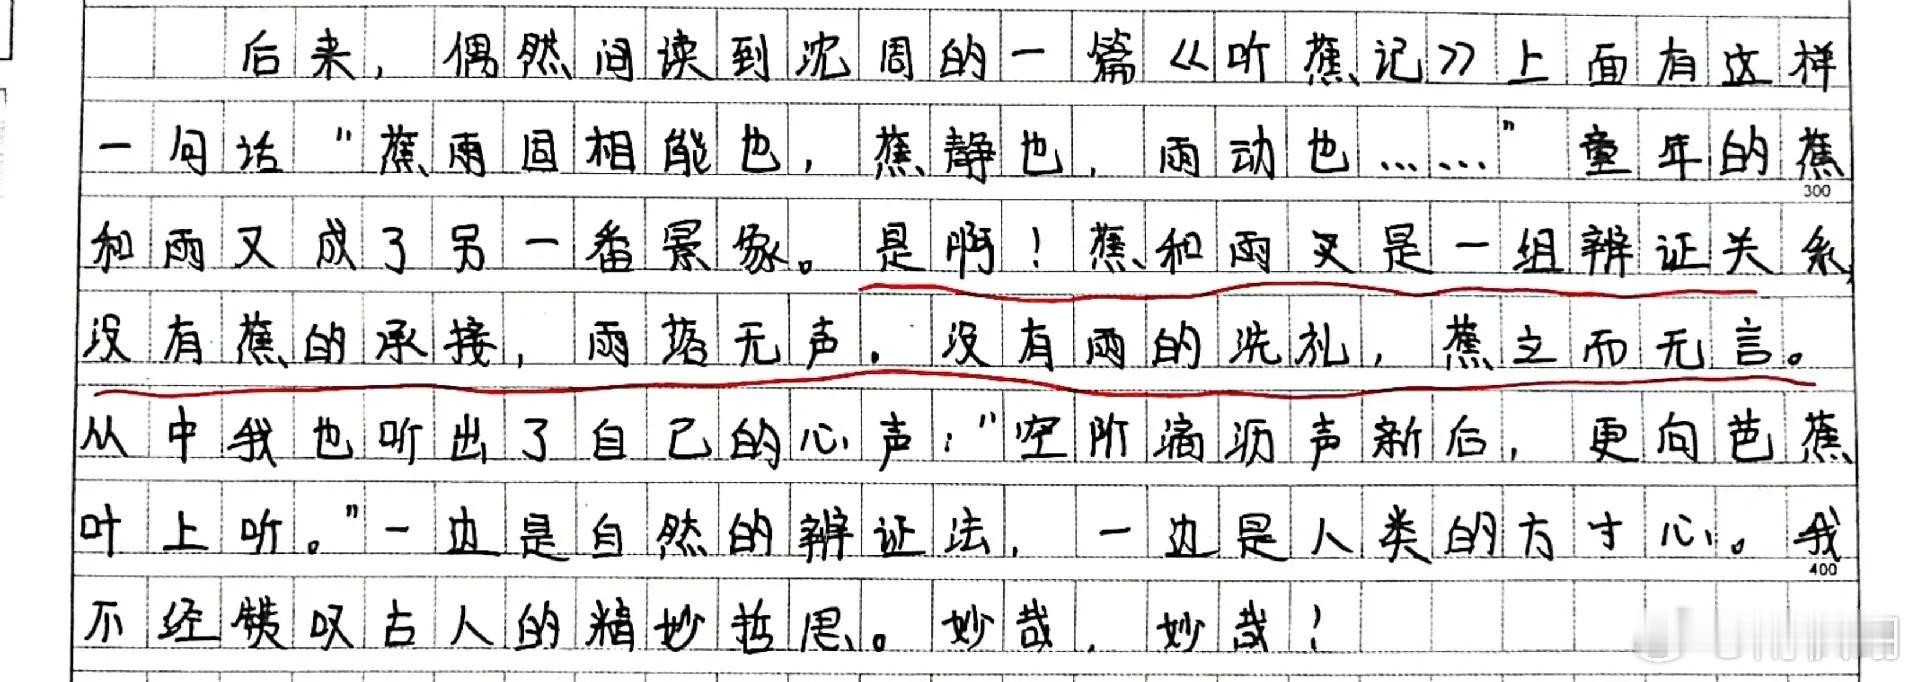 后来，偶然间读到沈周的一篇《听蕉记》上面有这样
一句话“蕉雨固相能也，蕉静也，雨动也……”童年的蕉
300
和雨又成了另一番景象。是啊！蕉和雨又是一组辨证关系，
没有蕉的承接，雨落无声。没有雨的洗礼，蕉立而无言。
从中我也听出了自己的心声：“空阶滴沥声新后，更向芭蕉
叶上听。”一边是自然的辨证法，一边是人类的方寸心。我
400
不经赞叹古人的精妙哲思。妙哉，妙哉！